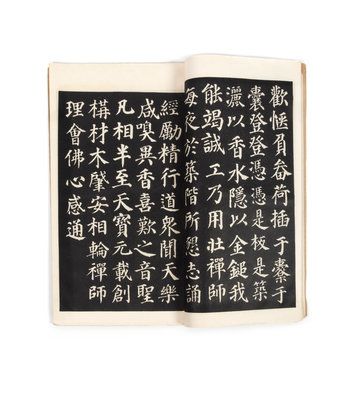 歡愜負畚荷插于橐于
囊登登憑憑是板是築
灑以香水隱以金鎚我
能竭誠工乃用壯禪師
每夜於築階所懇志誦
經勵精行道眾聞天樂
咸嗅異香喜歎之音聖
凡相半至天寶元載創
構材木肇安相輪禪師
理會佛心感通